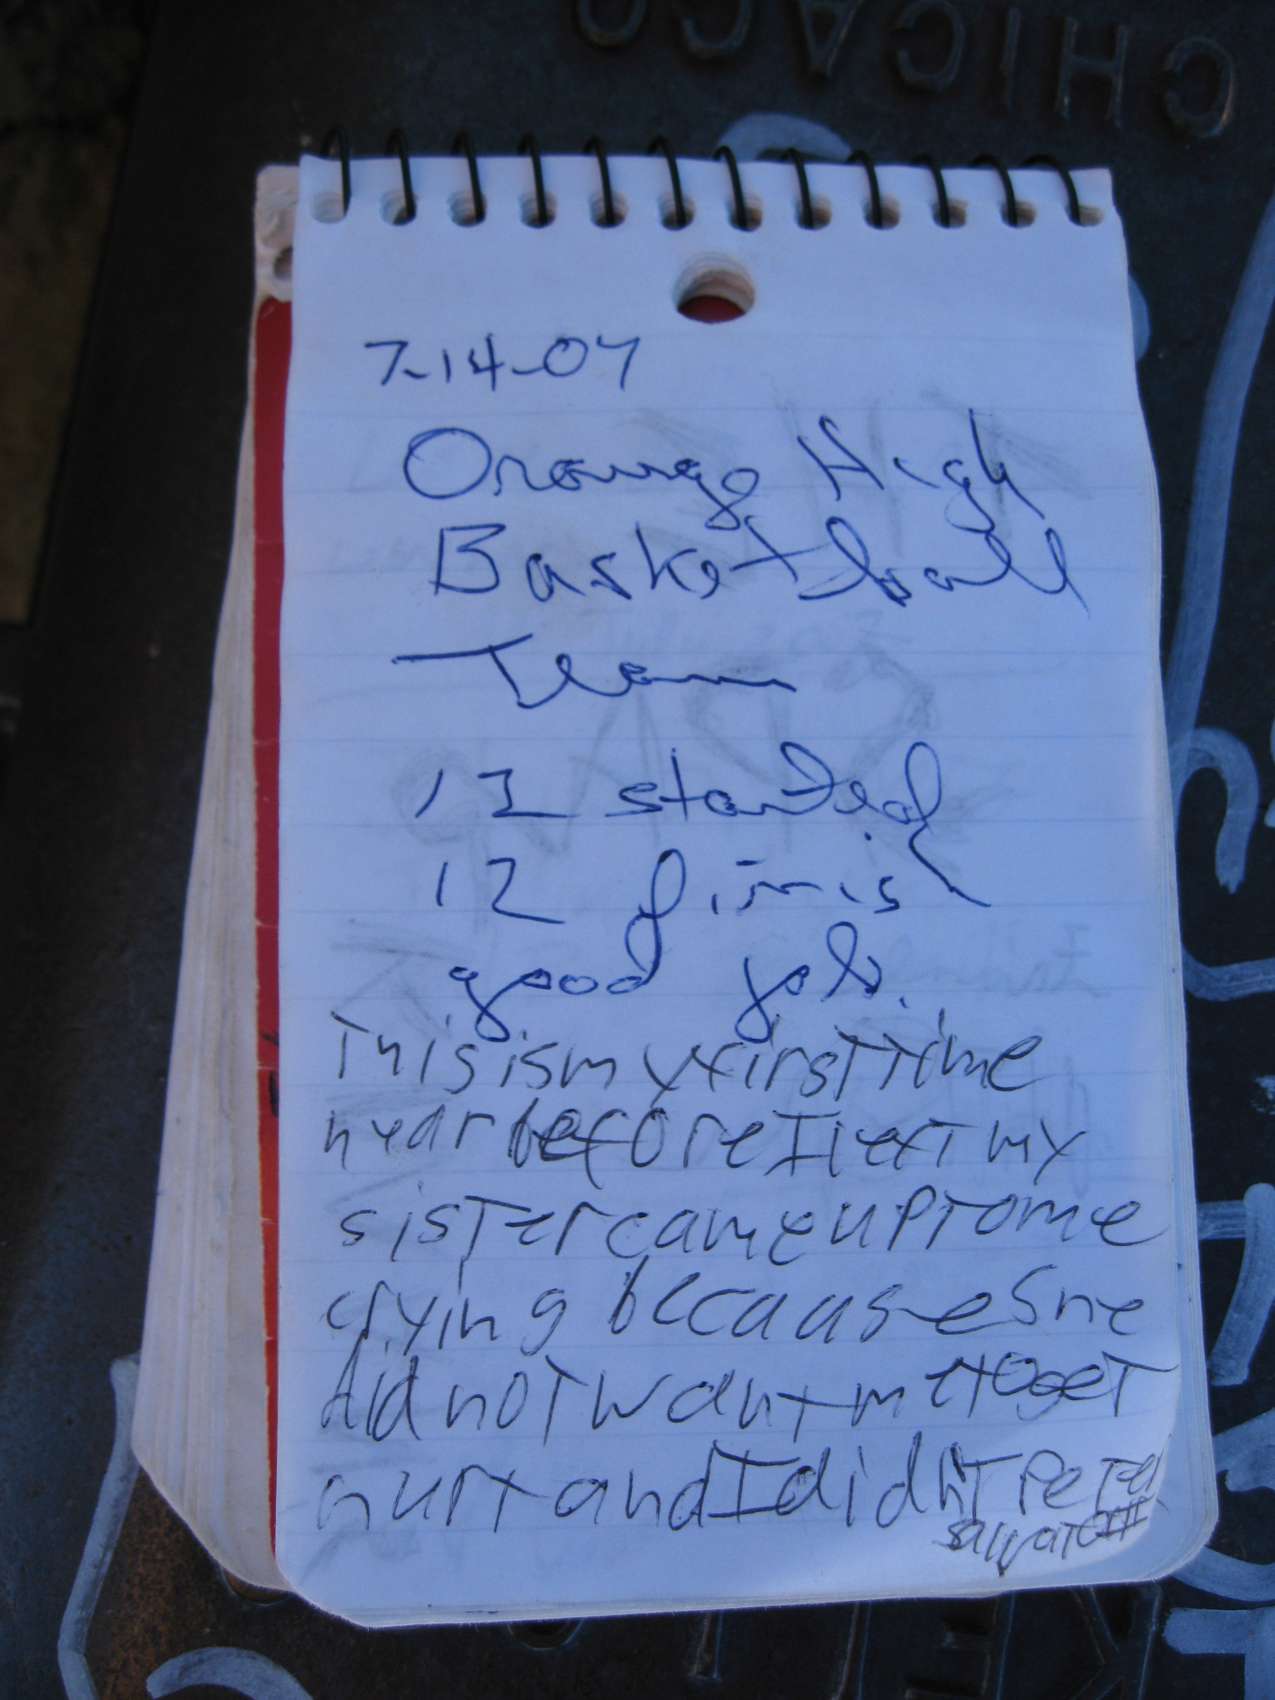 CHICAGO
7-14-07
Orange High
Basketball
Team
12 started
12 finish
good job.
This is my first time
hear before I left my
sister came up to me
crying because she
did not want me to get
hurt and I didnt Peter